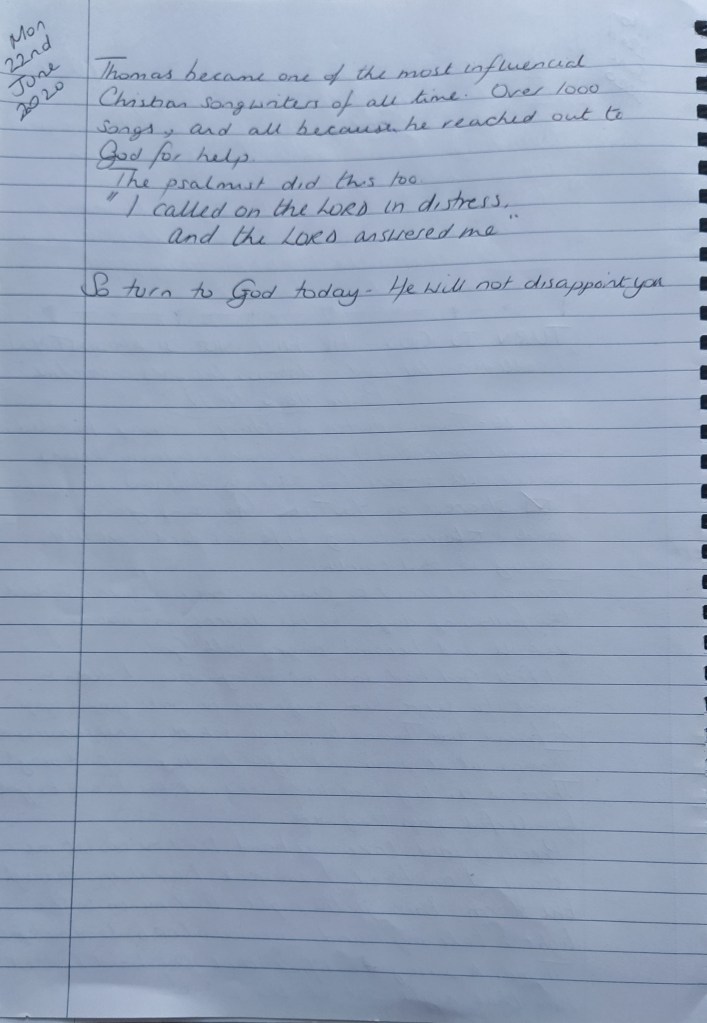 Mon
22nd
June
2020
Thomas became one of the most influencial
Christian songwriters of all time. Over 1000
songs, and all because he reached out to
God for help.
The psalmist did this too
"I called on the LORD in distress,
and the LORD answered me"
So turn to God today - He will not disappoint you